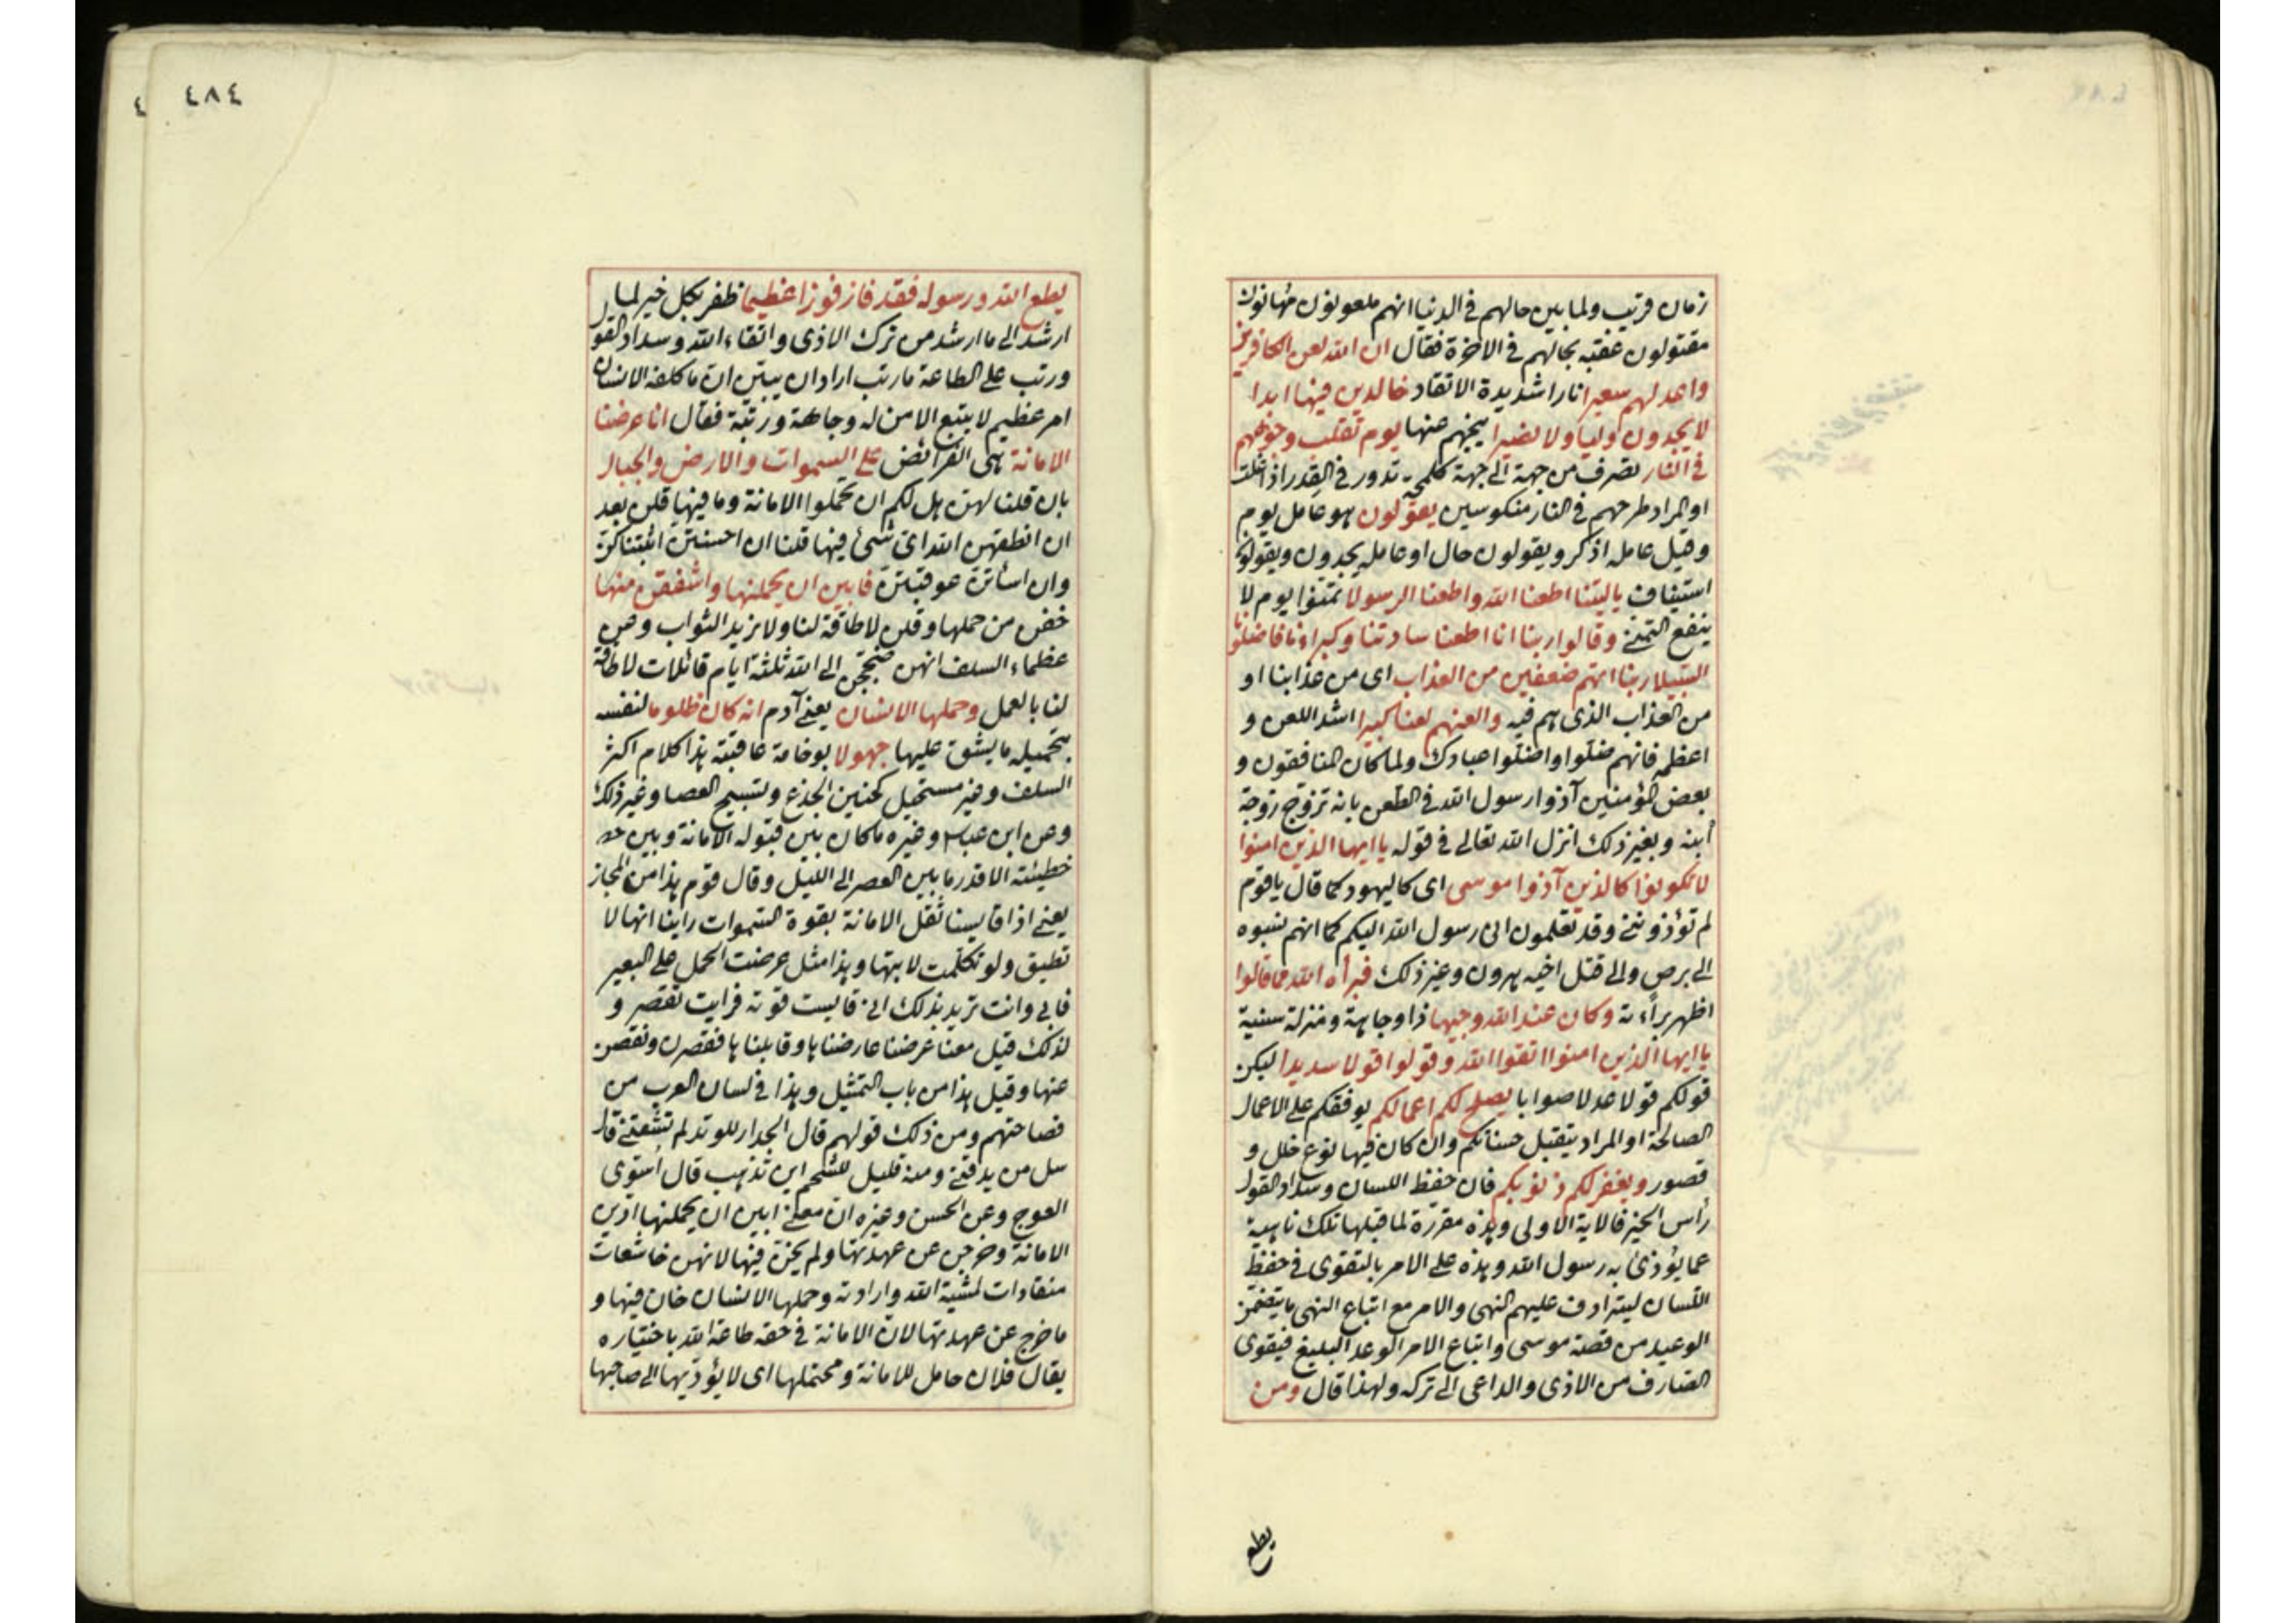 زمان قريب ولما بين حالهم في الدنيا انهم ملعونون مهانون
مقتولون عقبه بحالهم في الاخرة فقال ان الله لعن الكافرين
واعد لهم سعيرا نارا شديدة الاتقاد خالدين فيها ابدا
لا يجدون وليا ولا نصيرا ينجيهم عنها يوم تقلب وجوههم
في النار تصرف من جهة الى جهة كلحمة تدور في القدر اذا غلت
او المراد طرحهم في النار منكوسين يقولون هو عامل يوم
وقيل عامله اذكر ويقولون حال او عامله يجدون ويقولون
استيناف ياليتنا اطعنا الله واطعنا الرسولا تمنوا يوم لا
ينفع التمني وقالوا ربنا انا اطعنا سادتنا وكبراءنا فاضلونا
السبيلا ربنا اتهم ضعفين من العذاب اى من عذابنا او
من العذاب الذى هم فيه والعنهم لعنا كبيرا اشد اللعن و
اعظمه فانهم ضلوا واضلوا عبادك ولما كان المنافقون و
بعض المؤمنين آذوا رسول الله في الطعن بانه تزوج زوجة
ابنه وبغير ذلك انزل الله تعالى في قوله يا ايها الذين امنوا
لا تكونوا كالذين آذوا موسى اى كاليهود كما قال يا قوم
لم تؤذونني وقد تعلمون انى رسول الله اليكم كما انهم نسبوه
الى برص والى قتل اخيه هرون وغير ذلك فبرأه الله مما قالوا
اظهر براءته وكان عند الله وجيها ذا وجاهة ومنزلة سنية
يا ايها الذين امنوا اتقوا الله وقولوا قولا سديدا ليكن
قولكم قولا عدلا صوابا يصلح لكم اعمالكم يوفقكم على الاعمال
الصالحة او المراد يتقبل حسناتكم وان كان فيها نوع خلل و
قصور ويغفر لكم ذنوبكم فان حفظ اللسان وسداد القول
رأس الخير فالاية الاولى وهذه مقررة لما قبلها تلك ناهية
عما يؤذى به رسول الله وهذه على الامر بالتقوى في حفظ
اللسان ليترادف عليهم النهى والامر مع اتباع النهى ما يتضمن
الوعيد من قصة موسى واتباع الامر الوعد البليغ فيقوى
الصارف من الاذى والداعى الى تركه ولهذا قال ومن
يطع
٤٨٤
يطع الله ورسوله فقد فاز فوزا عظيما ظفر بكل خير لما
ارشد الى ما ارشد من ترك الاذى واتقاء الله وسداد القول
ورتب على الطاعة ما رتب اراد ان يبين ان ما كلفه الانسان
امر عظيم لا يتبع الا من له وجاهة ورتبة فقال انا عرضنا
الامانة هى الفرائض على السموات والارض والجبال
بان قلنا لهن هل لكم ان تحملوا الامانة وما فيها قلن بعد
ان انطقهن الله اى شئ فيها قلنا ان احسنتن اثبتناكن
وان اسأتن عوقبتن فابين ان يحملنها واشفقن منها
خفن من حملها وقلن لا طاقة لنا ولا نريد الثواب وعن
عظماء السلف انهن ضججن الى الله ثلثة ايام قائلات لا طاقة
لنا بالعمل وحملها الانسان يعني آدم انه كان ظلوما لنفسه
بتحميله ما يشق عليها جهولا بوخامة عاقبته هذا كلام اكثر
السلف وغير مستحيل كحنين الجذع وتسبيح العصا وغير ذلك
وعن ابن عباس وغيره ما كان بين قبوله الامانة وبين
خطيئته الا قدر ما بين العصر الى الليل وقال قوم هذا من المجاز
يعني اذا قايسنا ثقل الامانة بقوة السموات راينا انها لا
تطيق ولو تكلمت لابتها وهذا مثل عرضت الحمل على البعير
فابى وانت تريد بذلك انى قايست قوته فرايت تقصر و
لذلك قيل معنا عرضنا عارضناها وقابلناها فقصرن ونقصن
عنها وقيل هذا من باب التمثيل وهذا في لسان العرب من
فصاحتهم ومن ذلك قولهم قال الجدار للوتد لم تشقني قال
سل من يدقني ومنه قليل للشحم اين تذهب قال استوى
العوج وعن الحسن وغيره ان معنى ابين ان يحملنها ادين
الامانة وخرجن عن عهدتها ولم يخن فيها لانهن خاشعات
منقادات لمشية الله وارادته وحملها الانسان خان فيها و
ما خرج عن عهدتها لان الامانة في حقه طاعة الله باختياره
يقال فلان حامل للامانة ومحتملها اى لا يؤديها الى صاحبها